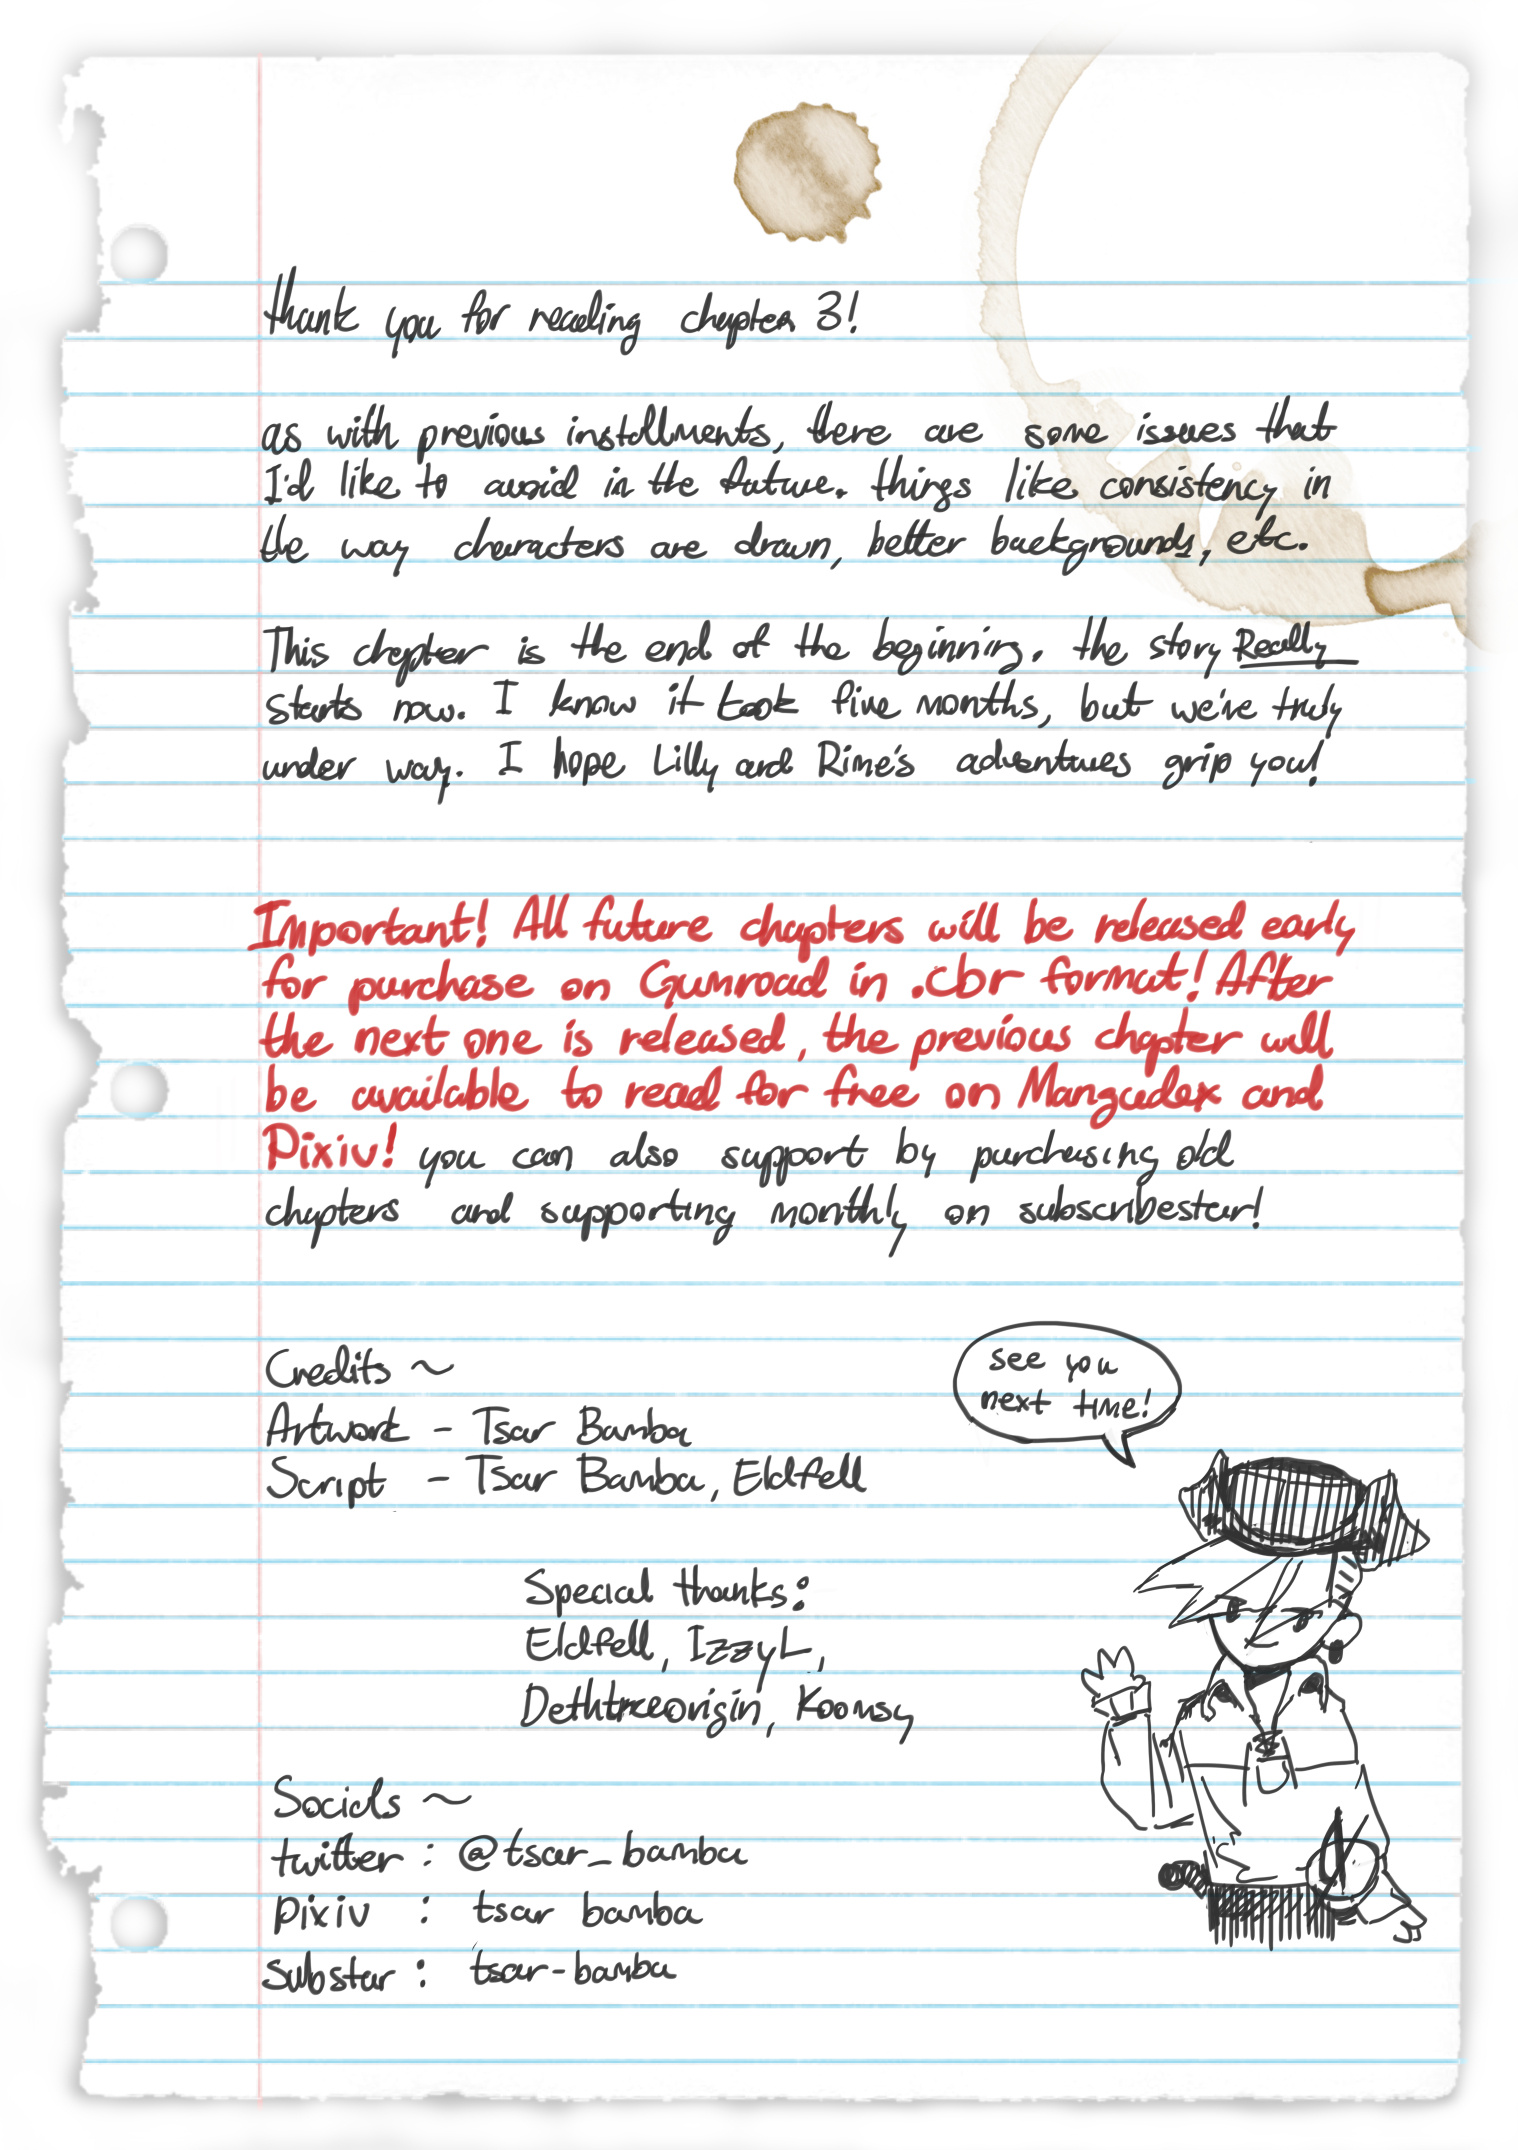 thank you for reading chapter 3!
as with previous installments, there are some issues that
I'd like to avoid in the future. things like consistency in
the way characters are drawn, better backgrounds, etc.
This chapter is the end of the beginning. the story Really
starts now. I know it took five months, but we're truly
under way. I hope Lilly and Rime's adventures grip you!
Important! All future chapters will be released early
for purchase on Gumroad in .cbr format! After
the next one is released, the previous chapter will
be available to read for free on Mangadex and
Pixiv! you can also support by purchasing old
chapters and supporting monthly on subscribestar!
Credits ~
Artwork - Tsar Bamba
Script - Tsar Bamba, Eldfell
see you
next time!
Special thanks:
Eldfell, IzzyL,
Dethtreeorigin, Koomsy
Socials ~
twitter : @tsar_bamba
pixiv : tsar bamba
substar : tsar-bamba